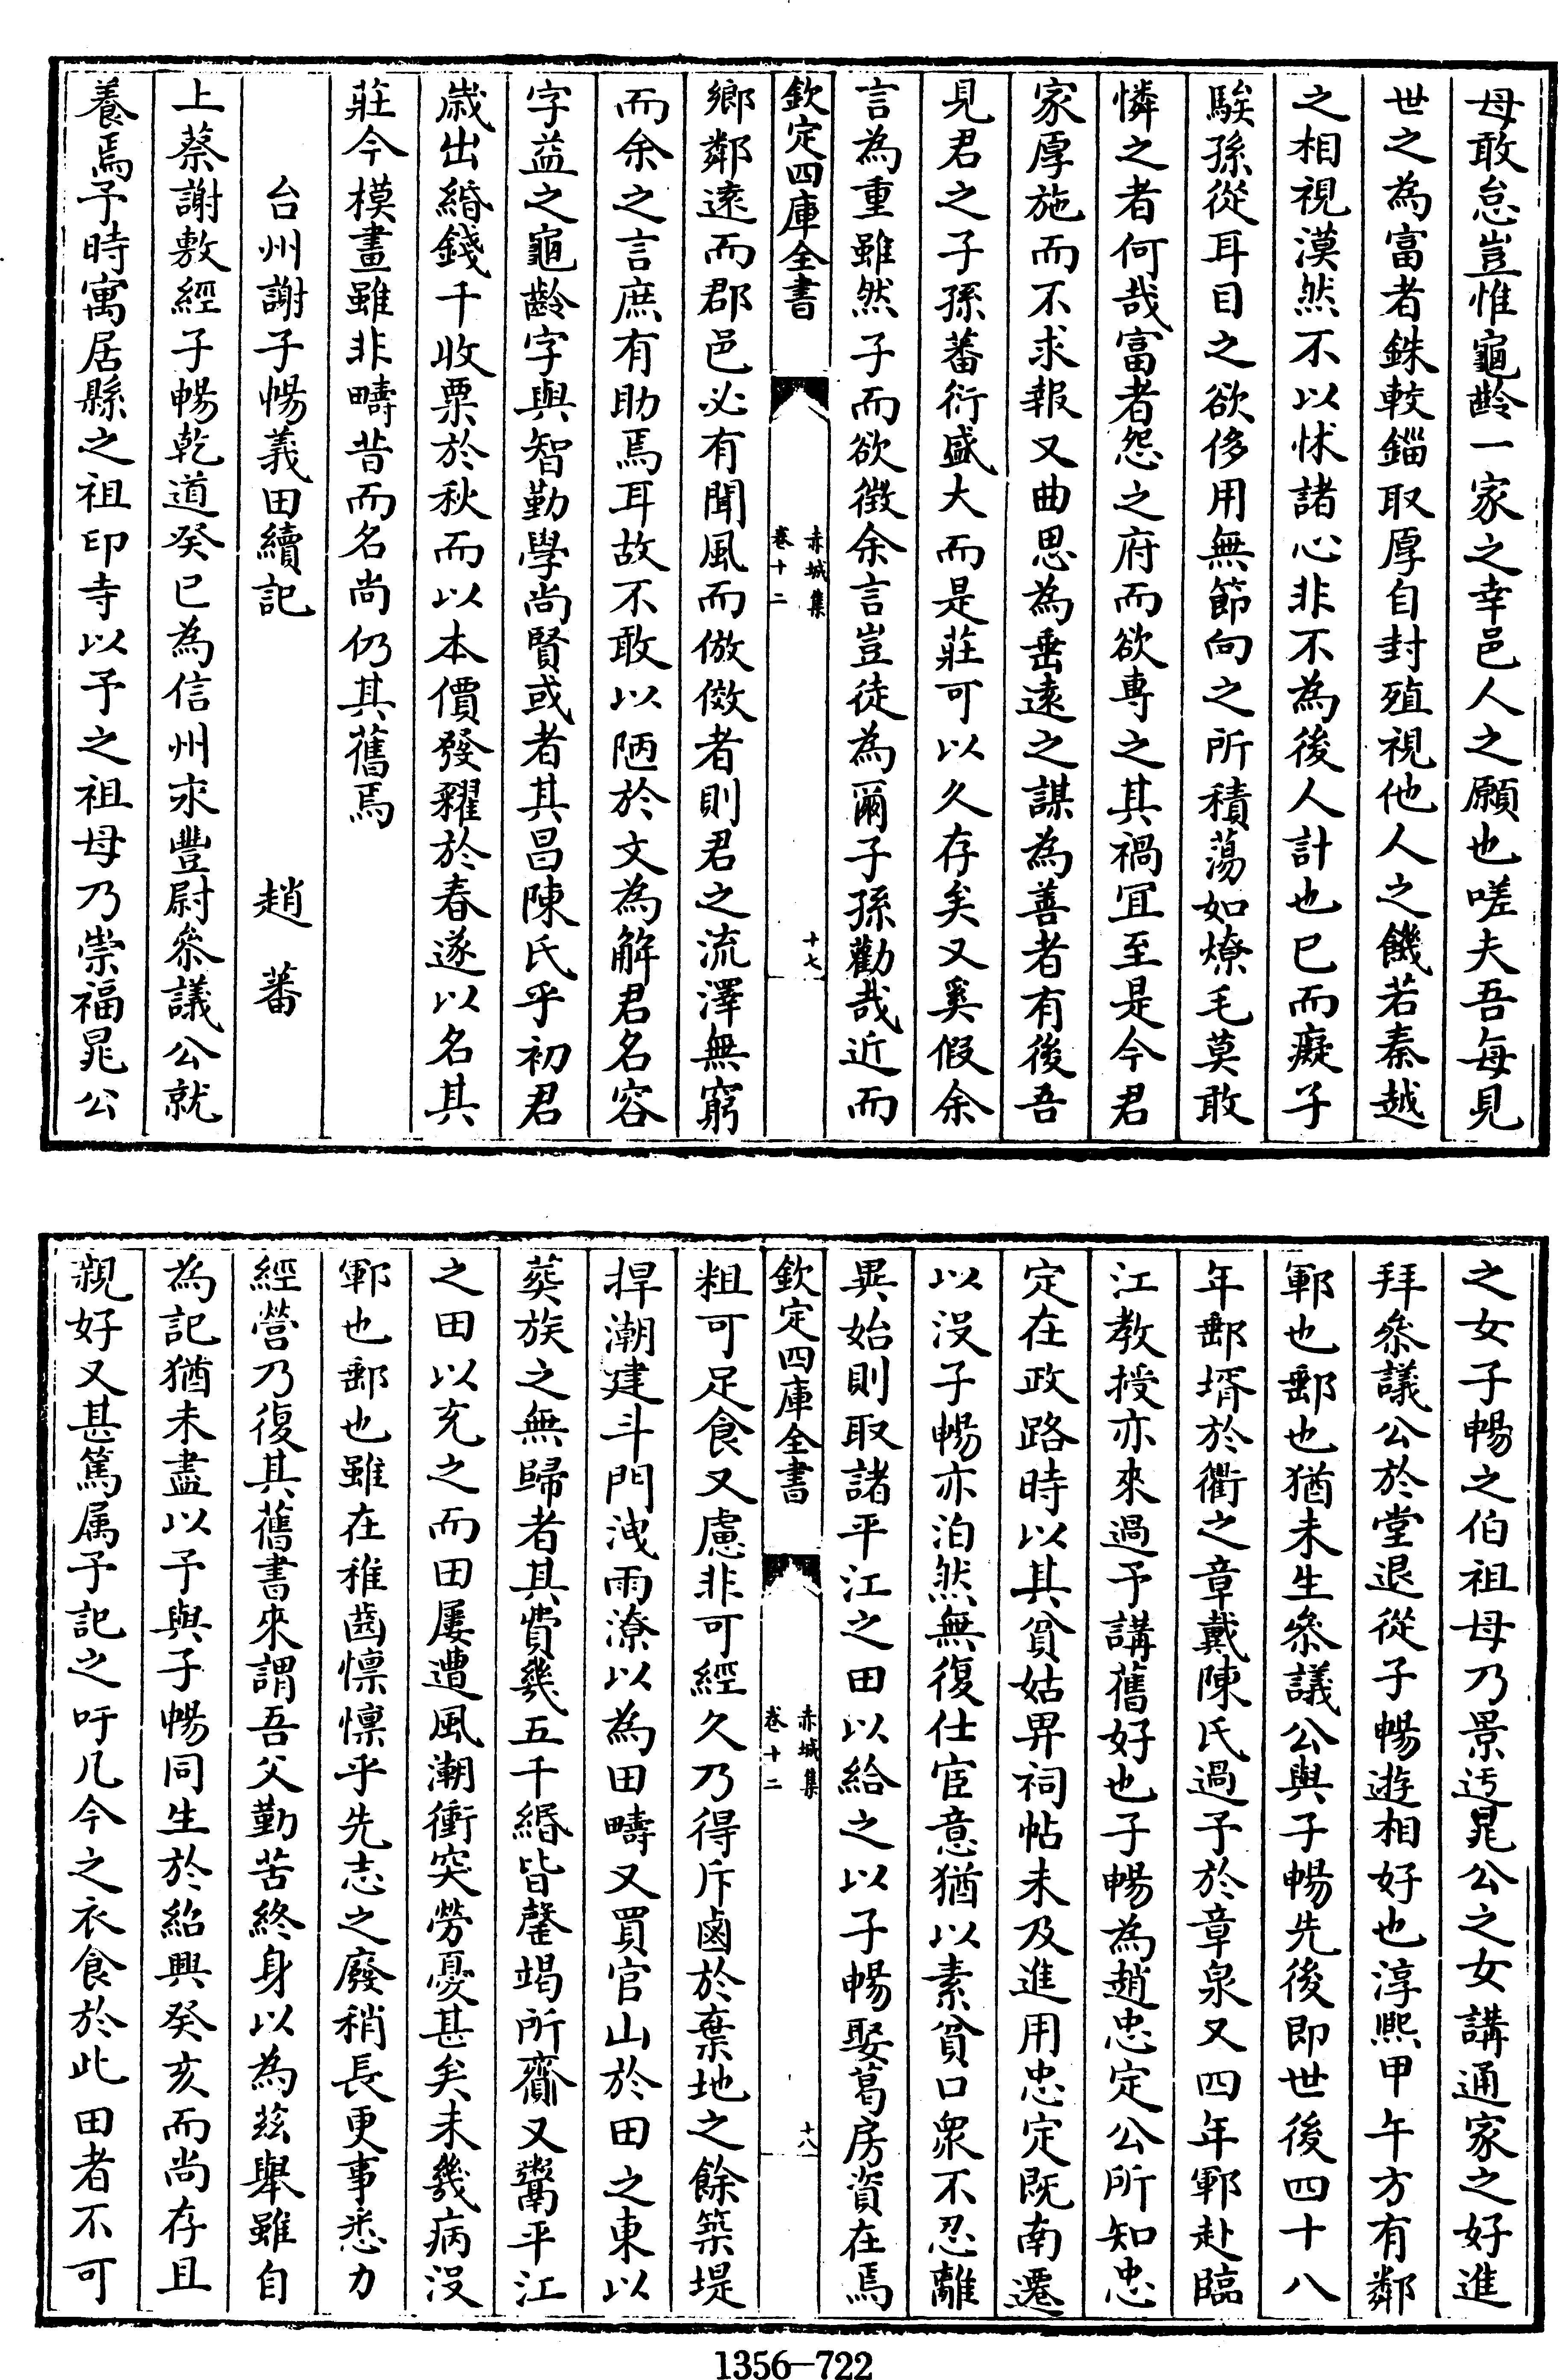 母敢怠豈惟龜齡一家之幸邑人之願也嗟夫吾每見
世之為富者銖較錙取厚自封殖視他人之饑若秦越
之相視漠然不以怵諸心非不為後人計也已而癡子
騃孫從耳目之欲侈用無節向之所積蕩如燎毛莫敢
憐之者何哉富者怨之府而欲專之其禍冝至是今君
家厚施而不求報又曲思為垂遠之謀為善者有後吾
見君之子孫蕃衍盛大而是莊可以久存矣又奚假余
言為重雖然子而欲徵余言豈徒為爾子孫勸哉近而
欽定四庫全書
赤城集
卷十二
十七
鄉鄰遠而郡邑必有聞風而倣傚者則君之流澤無窮
而余之言庶有助焉耳故不敢以陋於文為解君名容
字益之龜齡字與智勤學尚賢或者其昌陳氏乎初君
歲出緡錢千收粟於秋而以本價發糶於春遂以名其
莊今模畫雖非疇昔而名尚仍其舊焉
台州謝子暢義田續記
趙蕃
上蔡謝敷經子暢乾道癸巳為信州永豐尉叅議公就
養焉予時寓居縣之祖印寺以予之祖母乃崇福晁公
之女子暢之伯祖母乃景迃晁公之女講通家之好進
拜叅議公於堂退從子暢遊相好也淳熙甲午方有鄰
鄆也郵也猶未生叅議公與子暢先後即世後四十八
年郵壻於衢之章戴陳氏過予於章泉又四年鄆赴臨
江教授亦來過予講舊好也子暢為趙忠定公所知忠
定在政路時以其貧姑畀祠帖未及進用忠定既南遷
以沒子暢亦泊然無復仕宦意猶以素貧口衆不忍離
異始則取諸平江之田以給之以子暢娶葛房資在焉
欽定四庫全書
赤城集
卷十二
十八
粗可足食又慮非可經久乃得斥鹵於棄地之餘築堤
捍潮建斗門洩雨潦以為田疇又買官山於田之東以
葬族之無歸者其費幾五千緡皆罄竭所齎又鬻平江
之田以充之而田屢遭風潮衝突勞憂甚矣未幾病沒
鄆也郵也雖在稚齒懍懍乎先志之廢稍長更事悉力
經營乃復其舊書來謂吾父勤苦終身以為茲舉雖自
為記猶未盡以予與子暢同生於紹興癸亥而尚存且
親好又甚篤属予記之吁凡今之衣食於此田者不可
1356—722